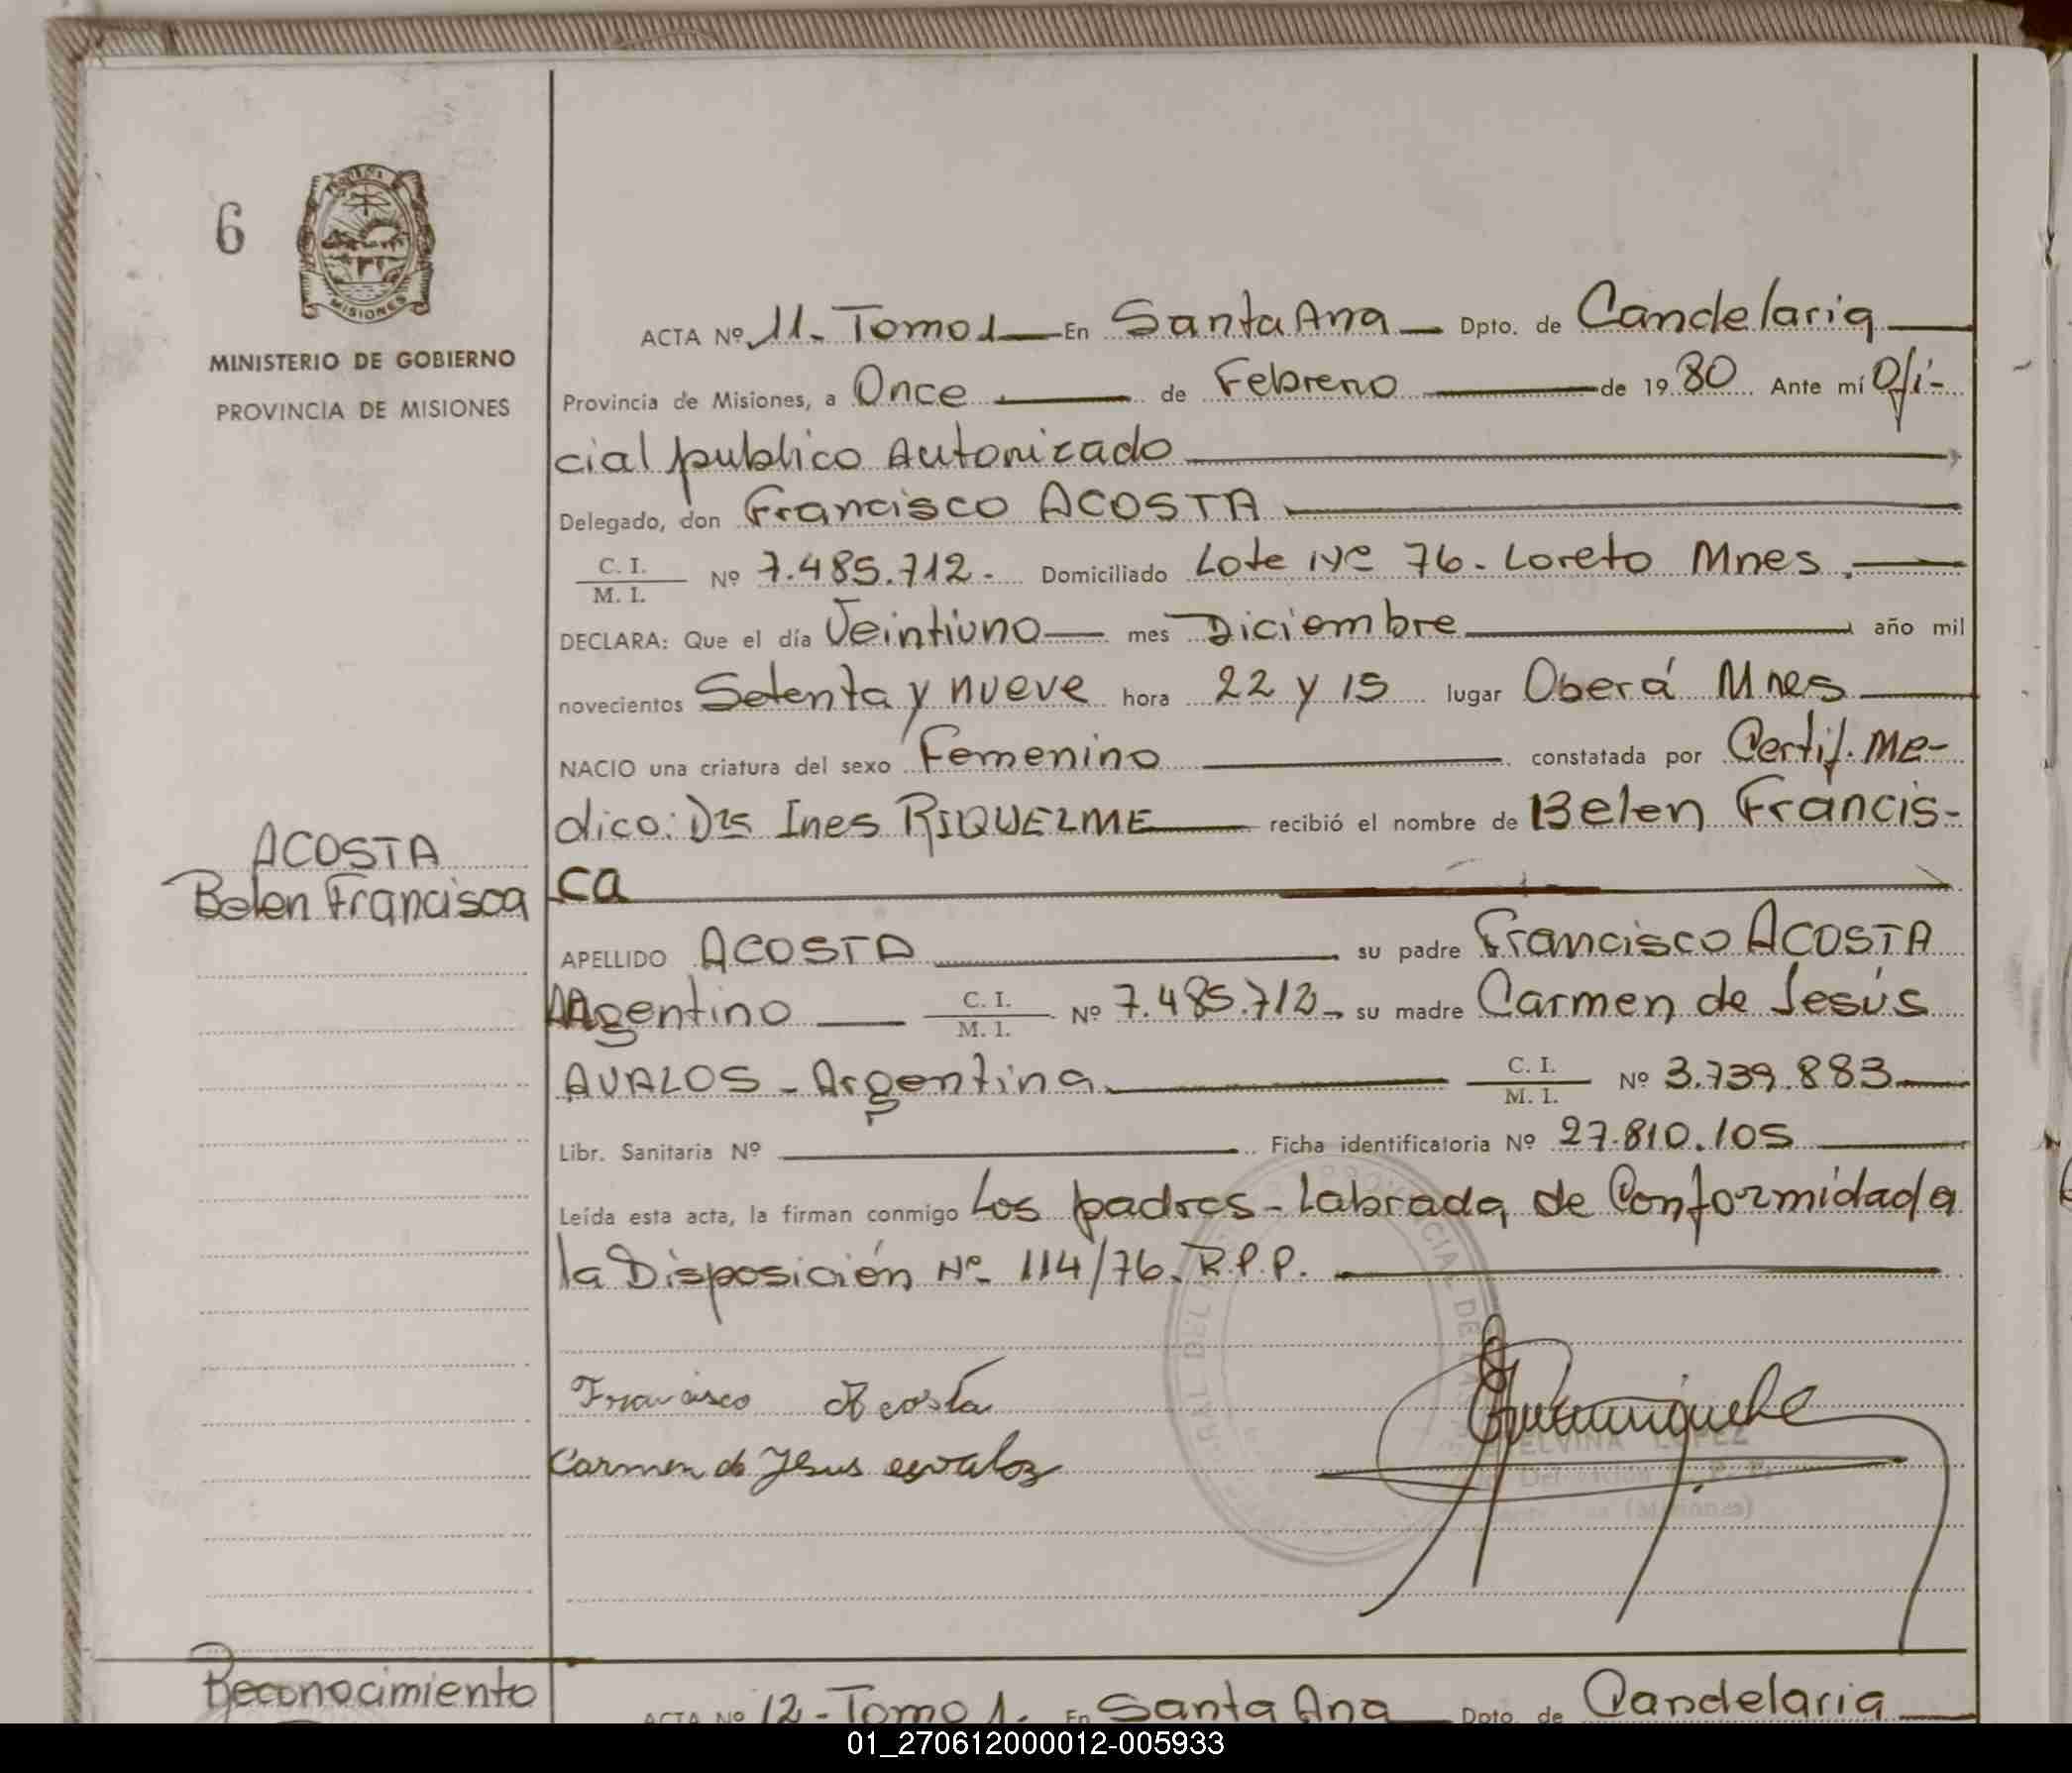 6
MISIONES
MINISTERIO DE GOBIERNO
PROVINCIA DE MISIONES
ACTA Nº 11. Tomo 1 En Santa Ana Dpto. de Candelaria
Provincia de Misiones, a Once de Febrero de 1980 Ante mí Ofi-
cial publico Autorizado
Delegado, don Francisco ACOSTA
C. I.
M. I. Nº 7.485.712. Domiciliado Lote Nº 76. Loreto Mnes.
DECLARA: Que el día Veintiuno mes Diciembre año mil
novecientos Setenta y nueve hora 22 y 15 lugar Oberá Mnes
NACIO una criatura del sexo Femenino constatada por Certif. Me-
dico: Drs Ines RIQUELME recibió el nombre de Belen Francis-
ca
ACOSTA
Belen Francisca
APELLIDO ACOSTA su padre Francisco ACOSTA
Argentino C. I.
M. I. Nº 7.485.712 su madre Carmen de Jesús
AVALOS - Argentina C. I.
M. I. Nº 3.739.883
Libr. Sanitaria Nº Ficha identificatoria Nº 27.810.105
Leída esta acta, la firman conmigo Los padres - Labrada de Conformidad a
la Disposición Nº 114/76. R.P.P.
Francisco Acosta
Carmen de Jesus avalos
ELVINA LOPEZ
(Misiones)
Reconocimiento
ACTA Nº 12 - Tomo 1. En Santa Ana Dpto. de Candelaria
01_270612000012-005933